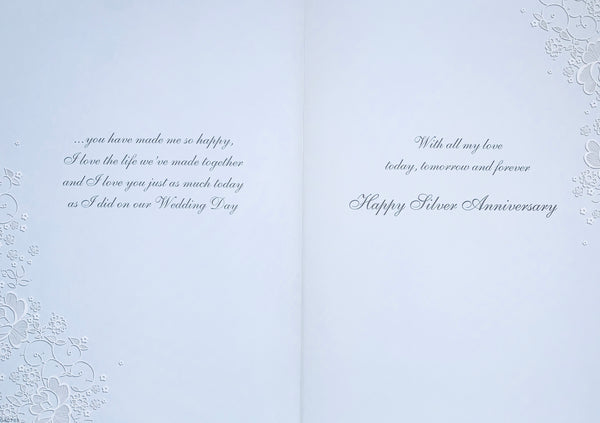 ...you have made me so happy,
I love the life we've made together
and I love you just as much today
as I did on our Wedding Day
With all my love
today, tomorrow and forever
Happy Silver Anniversary